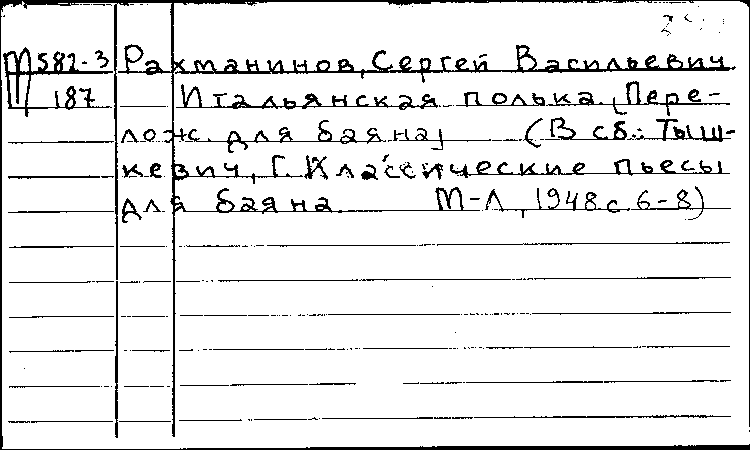 М582-3 Рахманинов, Сергей Васильевич.
187 Итальянская полька. [Пере-
лож. для баяна] (В сб.: Тыш-
кевич, Г. Классические пьесы
для баяна. М-Л, 1948 с. 6-8)